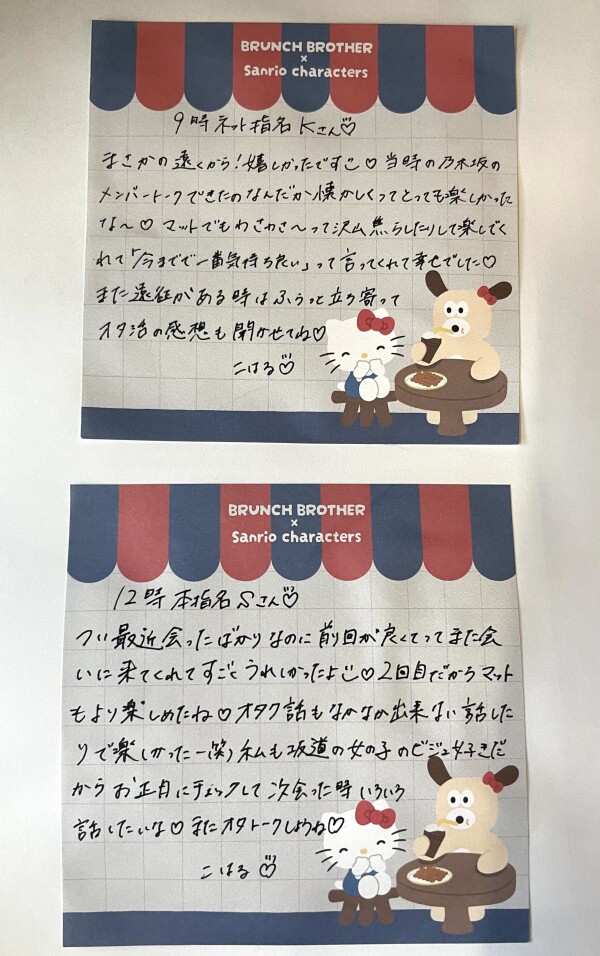 BRUNCH BROTHER
×
Sanrio characters
9時 ネット指名 Kさん♡
まさかの遠くから!嬉しかったです♡当時の乃木坂の
メンバートークできたのなんだか懐かしくってとっても楽しかった
な〜♡ マットでもわさわさ〜って沢山焦らしたりして楽しでく
れて「今までで一番気持ち良い」って言ってくれて幸せでした♡
また遠征がある時はふらっと立ち寄って
オタ活の感想も聞かせてね♡
こはる♡
BRUNCH BROTHER
×
Sanrio characters
12時 本指名 Sさん♡
つい最近会ったばかりなのに前回が良くてってまた会
いに来てくれてすごくうれしかったよ♡2回目だからマット
もより楽しめたね♡オタク話もなかなか出来ない話した
りで楽しかったー笑)私も坂道の女の子のビジュ好きだ
からお正月にチェックして次会った時いろいろ
話したいな♡またオタトークしようね♡
こはる♡